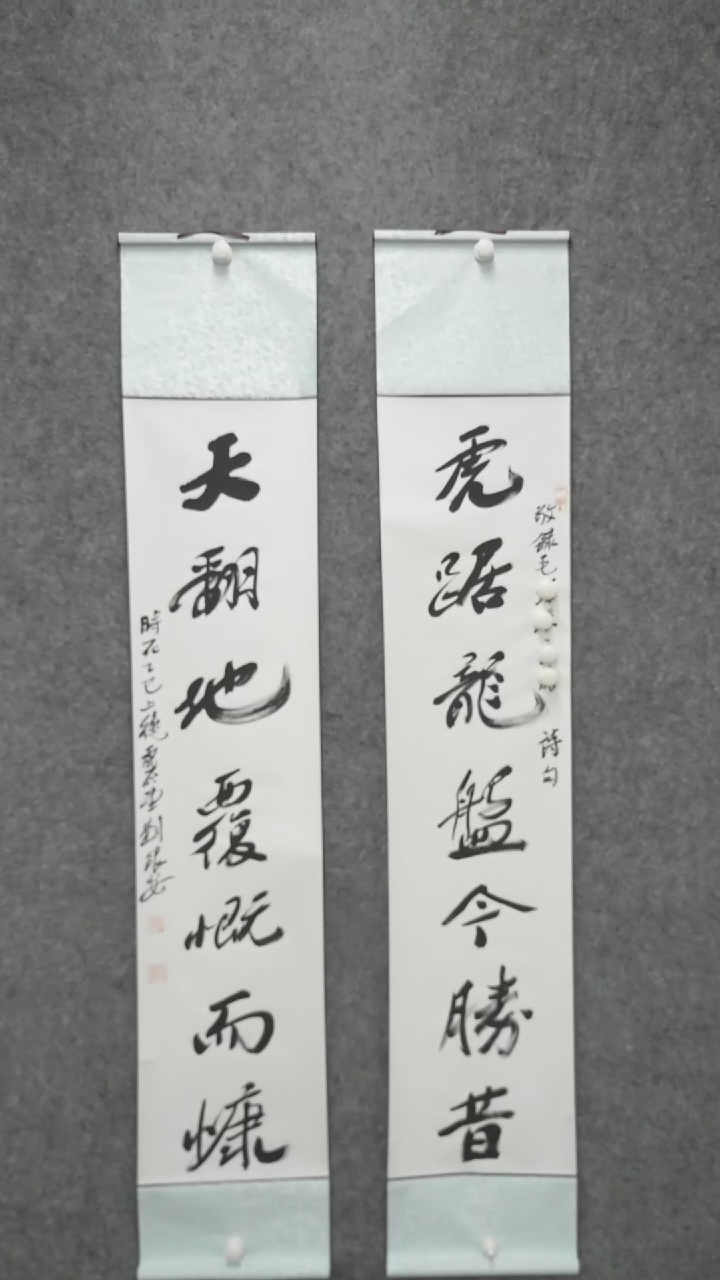 虎踞龍盤今勝昔
敬錄毛
詩句
天翻地覆慨而慷
時在乙巳上